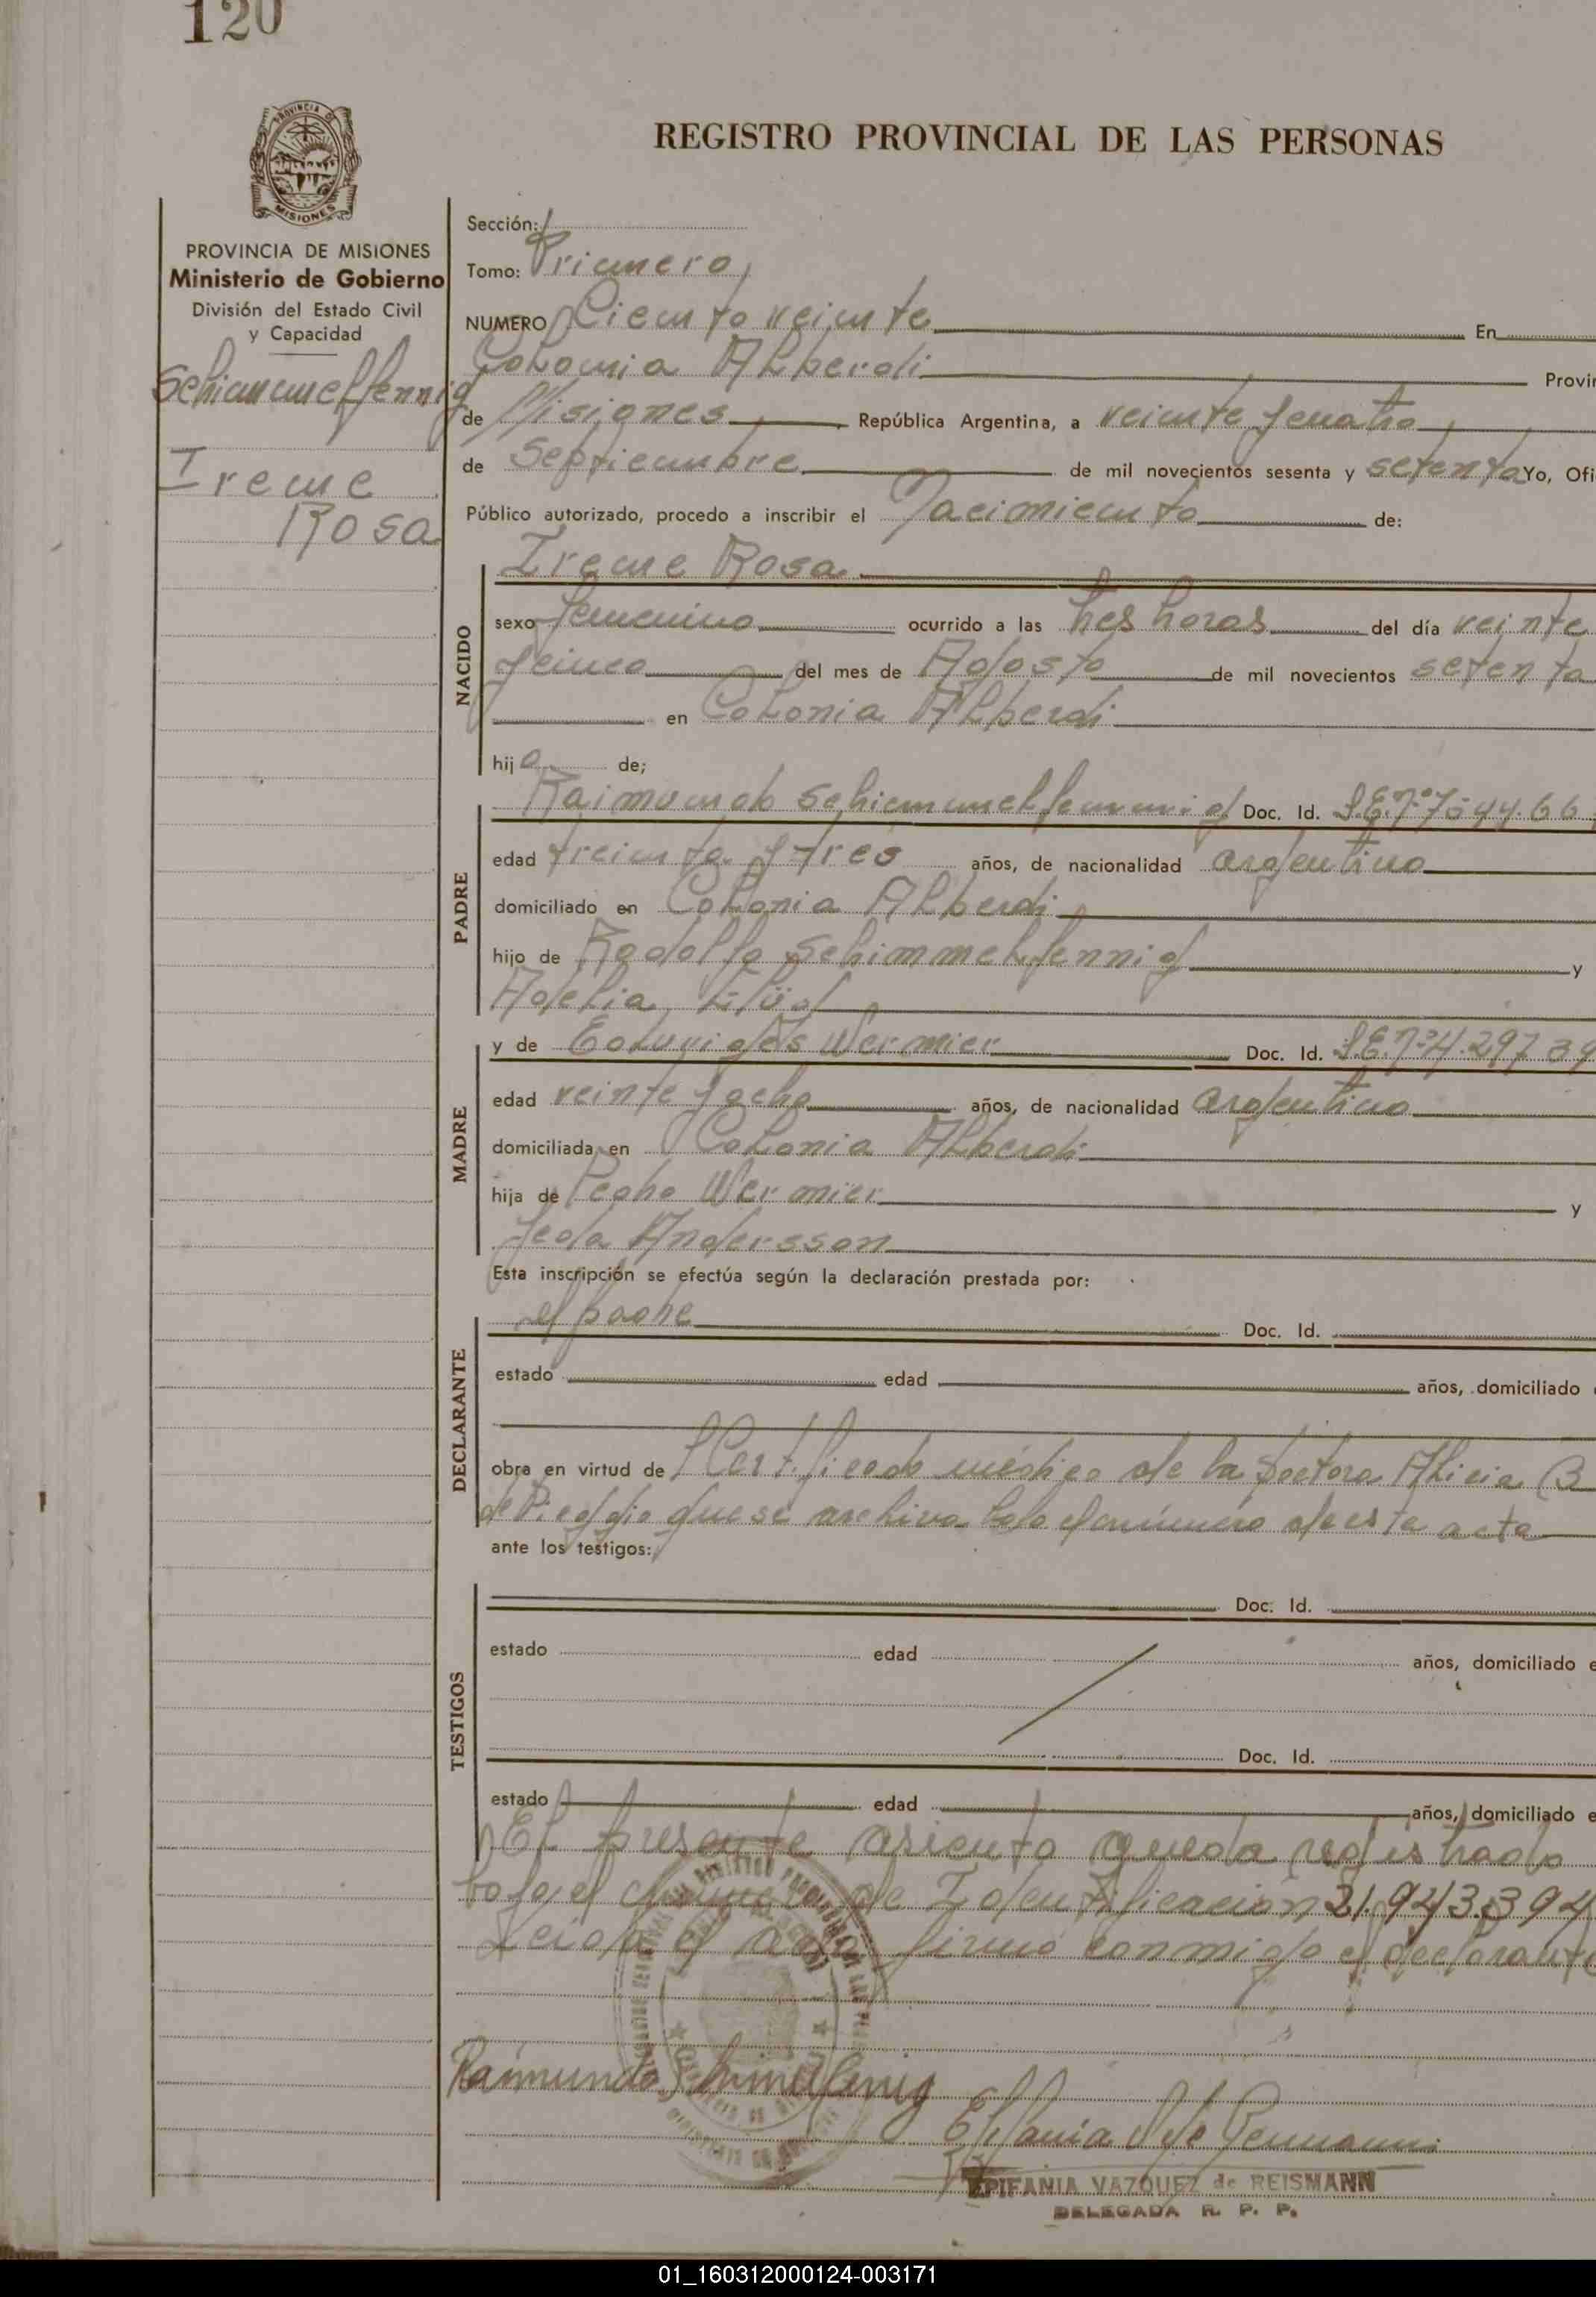 120
REGISTRO PROVINCIAL DE LAS PERSONAS
PROVINCIA DE MISIONES
Ministerio de Gobierno
División del Estado Civil
y Capacidad
Schimmelfennig
Irene
Rosa
Sección:
Tomo: Primero
NUMERO Ciento veinte En
Colonia Alberdi Provin
de Misiones República Argentina, a veinte y cuatro
de Septiembre de mil novecientos sesenta y setenta Yo, Ofi
Público autorizado, procedo a inscribir el Nacimiento de:
NACIDO
Irene Rosa
sexo femenino ocurrido a las tres horas del día veinte
y cinco del mes de Agosto de mil novecientos setenta
en Colonia Alberdi
hija de;
PADRE
Raimundo Schimmelfennig Doc. Id. L.E.Nº 7544.66
edad treinta y tres años, de nacionalidad argentino
domiciliado en Colonia Alberdi
hijo de Rodolfo Schimmelfennig y
Adelia
MADRE
y de Eduvigés Wermier Doc. Id. 4.297.39
edad veinte y ocho años, de nacionalidad argentino
domiciliada en Colonia Alberdi
hija de Pedro Wermier y
Andersson
Esta inscripción se efectúa según la declaración prestada por:
DECLARANTE
el padre Doc. Id.
estado edad años, domiciliado
obra en virtud de Certificado médico de la Doctora Alicia B
de que se archiva bajo el número de este acta
ante los testigos:
TESTIGOS
Doc. Id.
estado edad años, domiciliado e
Doc. Id.
estado edad años, domiciliado e
El presente asiento queda registrado
bajo el de Identificación 21.943.394
Leida el acta firmó conmigo el declarante
Raimundo
EPIFANIA VAZQUEZ de REISMANN
DELEGADA R. P. P.
01_160312000124-003171